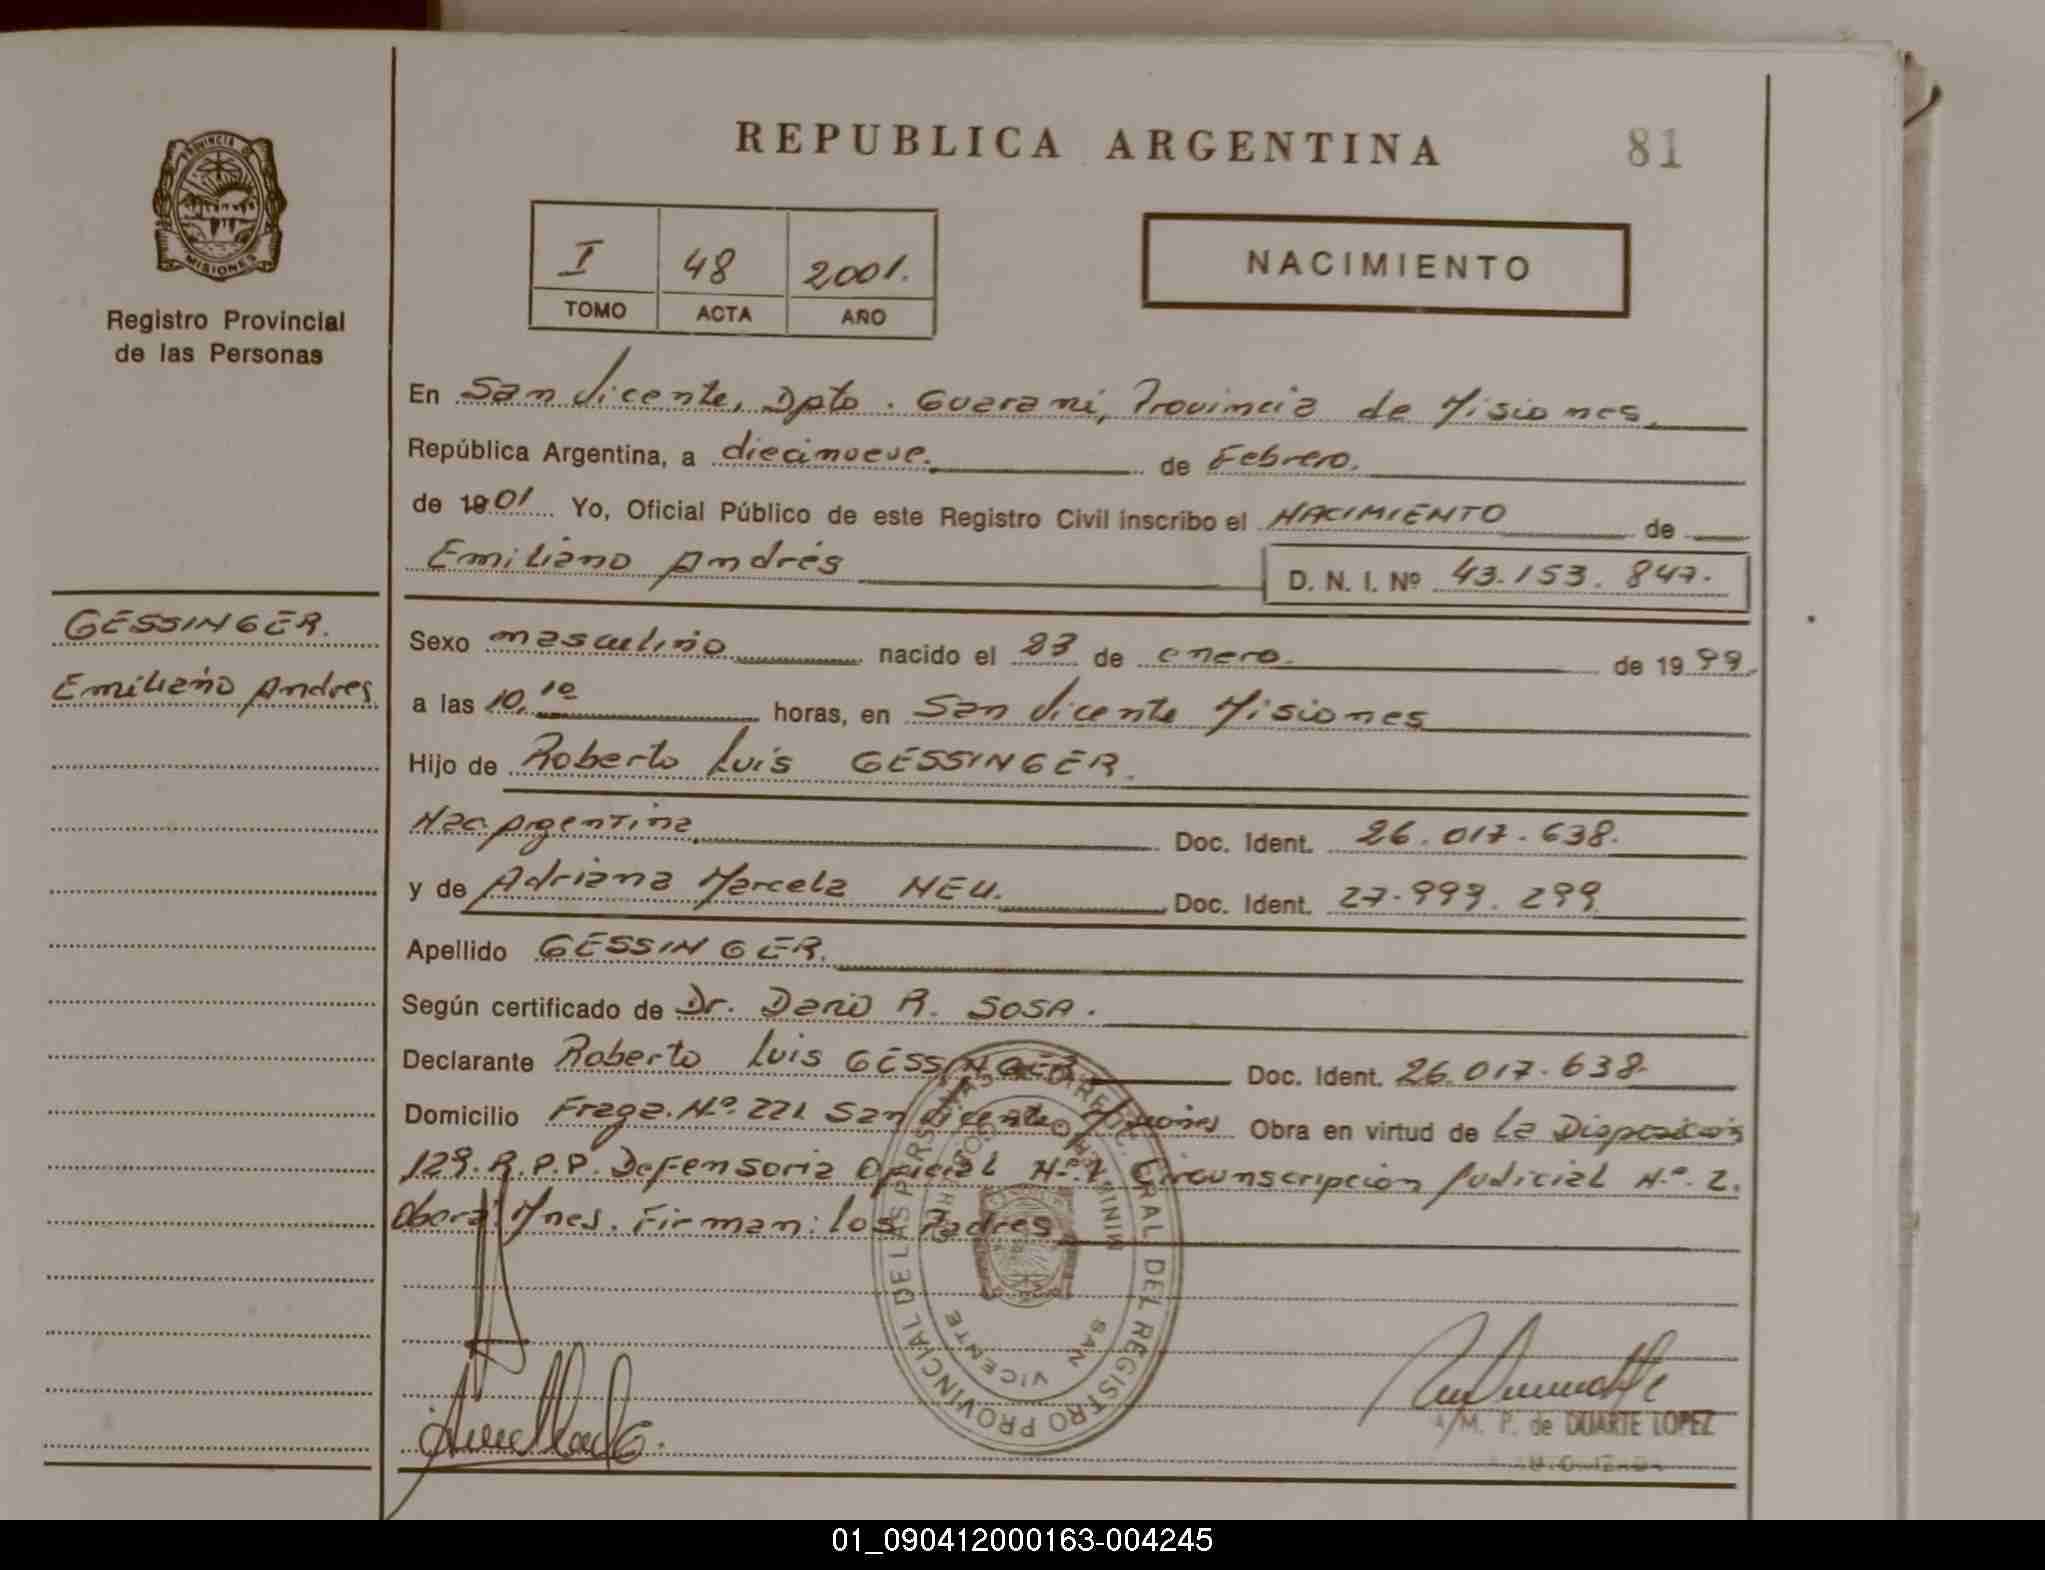 REPUBLICA ARGENTINA
81
PROVINCIA DE
MISIONES
Registro Provincial
de las Personas
I 48 2001.
TOMO ACTA AÑO
NACIMIENTO
En San Vicente, Dpto. Guarani, Provincia de Misiones,
República Argentina, a diecinueve. de Febrero.
de 1901 Yo, Oficial Público de este Registro Civil inscribo el NACIMIENTO de
Emiliano Andrés D. N. I. Nº 43.153.847.
GESSINGER.
Emiliano Andres
Sexo masculino nacido el 23 de enero. de 1999.
a las 10,10 horas, en San Vicente Misiones
Hijo de Roberto Luis GESSINGER.
Nac. Argentina Doc. Ident. 26.017.638.
y de Adriana Marcela NEU. Doc. Ident. 27.999.299
Apellido GESSINGER.
Según certificado de Dr. Dario R. SOSA.
Declarante Roberto Luis GESSINGER Doc. Ident. 26.017.638.
Domicilio Fraga. Nº. 221 San Vicente Misiones Obra en virtud de La Disposición
129. R.P.P. Defensoria Oficial Nº.1 Circunscripción Judicial Nº. 2.
Obera. Mnes. Firman: los Padres
DIREC. GRAL DEL REGISTRO PROVINCIAL DE LAS PERSONAS
SAN VICENTE
M. P. de DUARTE LOPEZ
01_090412000163-004245